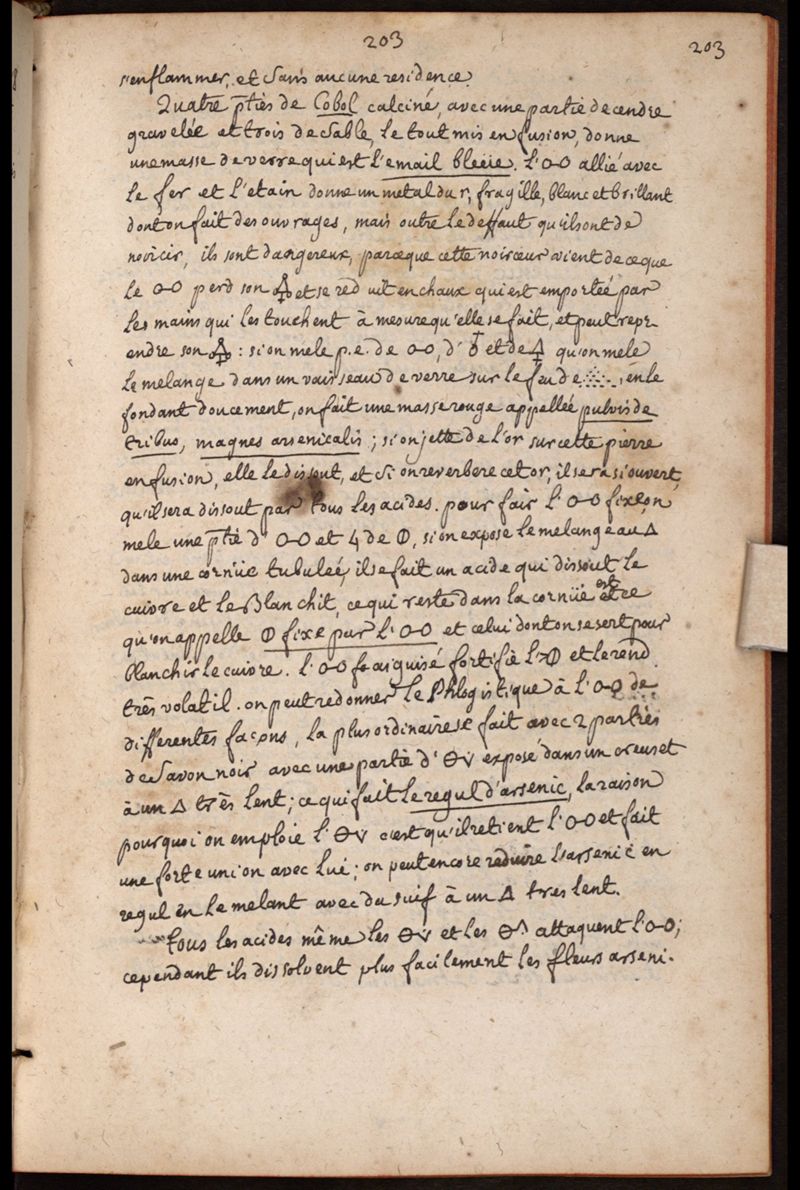 203
203
s'enflammer, et sans aucune residence.
Quatre pties de Cobol calciné, avec une partie de cendre
gravelée et trois de sable, le tout mis en fusion, donne
une masse de verre qui est l'email bleüe. l'o-o allié avec
le fer et l'etain donne un metal dur, fragille, blanc et brillant
dont on fait des ouvrages, mais outre le deffaut qu'ils ont de
noircir, ils sont dangereux, parceque cette noirceur vient de ce que
le o-o perd son 🜍 et se reduit en chaux qui est emportée par
les mains qui les touchent à mesure qu'elle se fait, et peut repr
endre son 🜍 : si on mele p.e. de o-o, d'♁ et de 🜍 qu'on mele
le melange dans un vaisseau de verre sur le feu de ; en le
fondant doucement, on fait une masse rouge appellée pulvis de
tribus, magnes arsenicalis ; si on jette de l'or sur cette pierre
en fusion, elle le dissout, et si on reverbere cet or, il sera si ouvert,
qu'il sera dissout par tous les acides. pour fair l'o-o fixe on
mele une ptie d'o-o et 4 de 🜕, si on expose le melange au △
dans une cornüe tubuleé, il se fait un acide qui dissout le
cuivre et le blanchit, ce qui reste dans la cornüe est ce
qu'on appelle 🜕 fixe par l'o-o et celui dont on se sert pour
blanchir le cuivre. l'o-o aiguisé fortifie l' et le rend
très volatil. on peut redonner le Phlogistique à l'o-o de
differentes façons, la plus ordinaire se fait avec 2 parties
de savon noir avec une partie d'🜔v exposé dans un creuset
à un △ très lent; ce qui fait le regul d'arsenic, la raison
pourquoi on emploie l'🜔v c'est qu'il retient l'o-o et fait
une forte union avec lui; on peut encore reduire l'arsenic en
regul en le melant avec du suif à un △ tres lent.
tous les acides même les 🜔v et les 🜔^ attaquent l'o-o;
cependant ils dissolvent plus facilement les fleurs arseni.